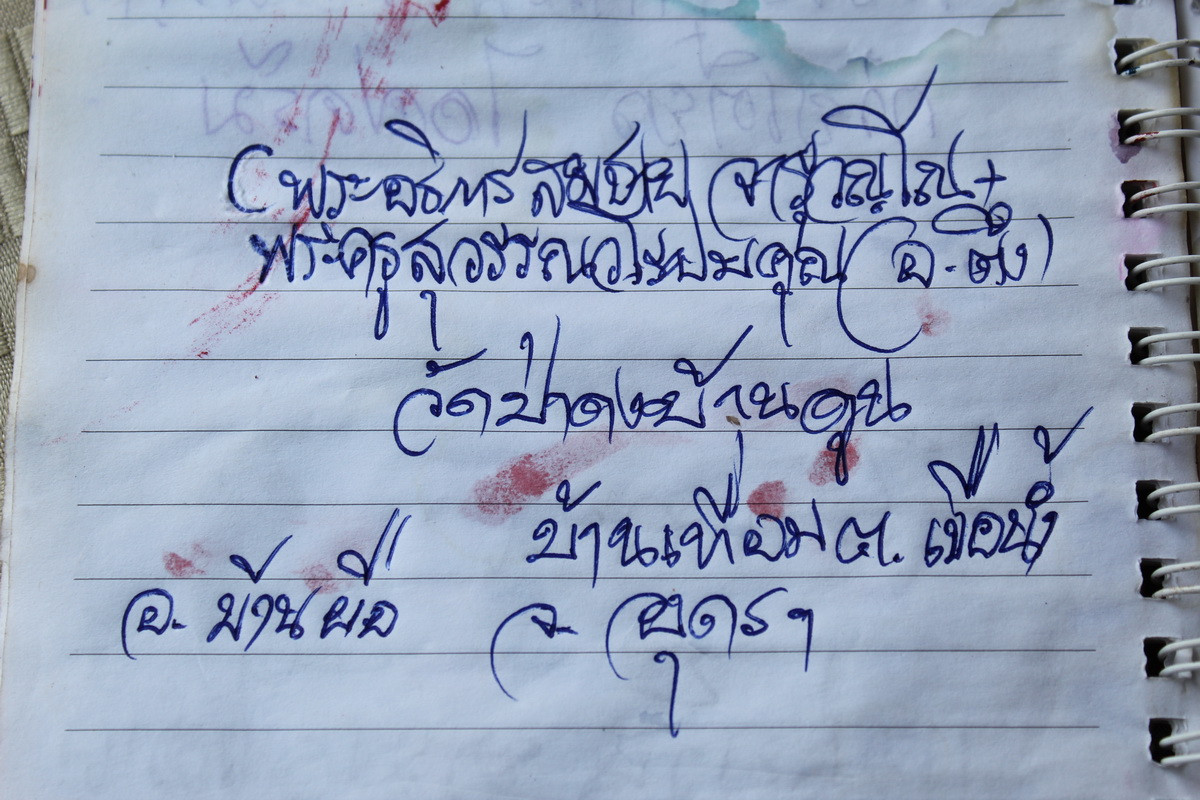 ( พระอธิการสมชาย จารุวณฺโณ +
พระครูสุวรรณวโรปมคุณ ( อ. ตึ๋ง )
วัดป่าดงบ้านคูน
บ้านเทื่อม ต. เขือน้ำ
อ. บ้านผือ จ. อุดรฯ